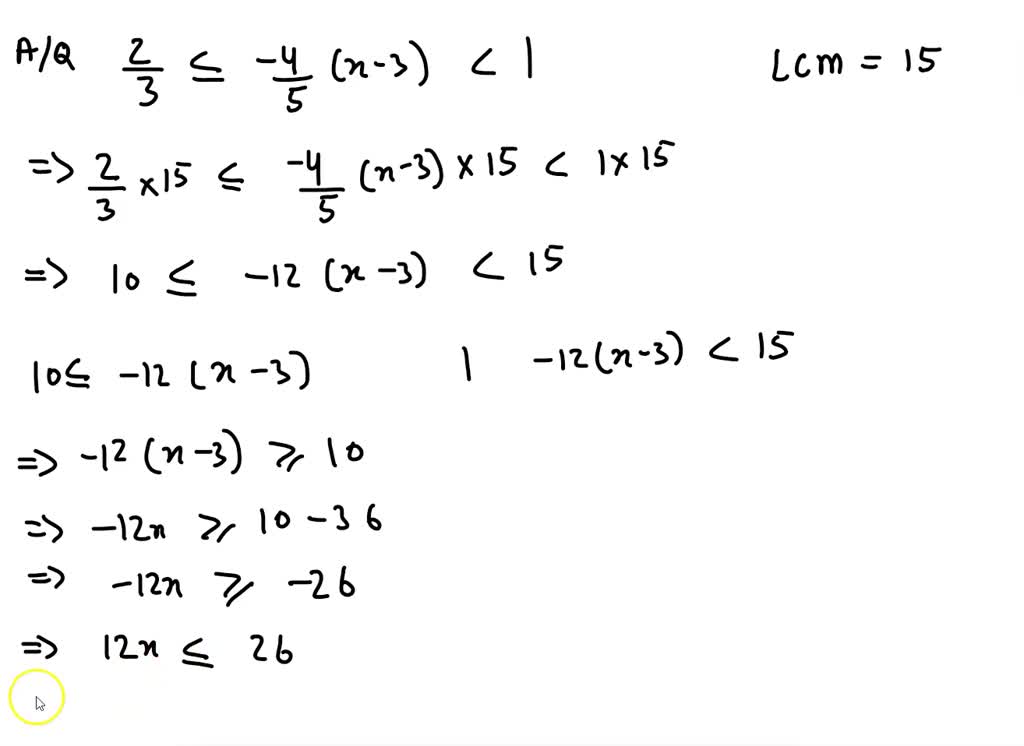 A/Q 2/3 ≤ -4/5 (x-3) < 1 LCM = 15
=> 2/3 ×15 ≤ -4/5 (x-3) × 15 < 1×15
=> 10 ≤ -12 (x-3) < 15
10≤ -12 (x-3) | -12(x-3) < 15
=> -12 (x-3) ≥ 10
=> -12x ≥ 10-36
=> -12x ≥ -26
=> 12x ≤ 26